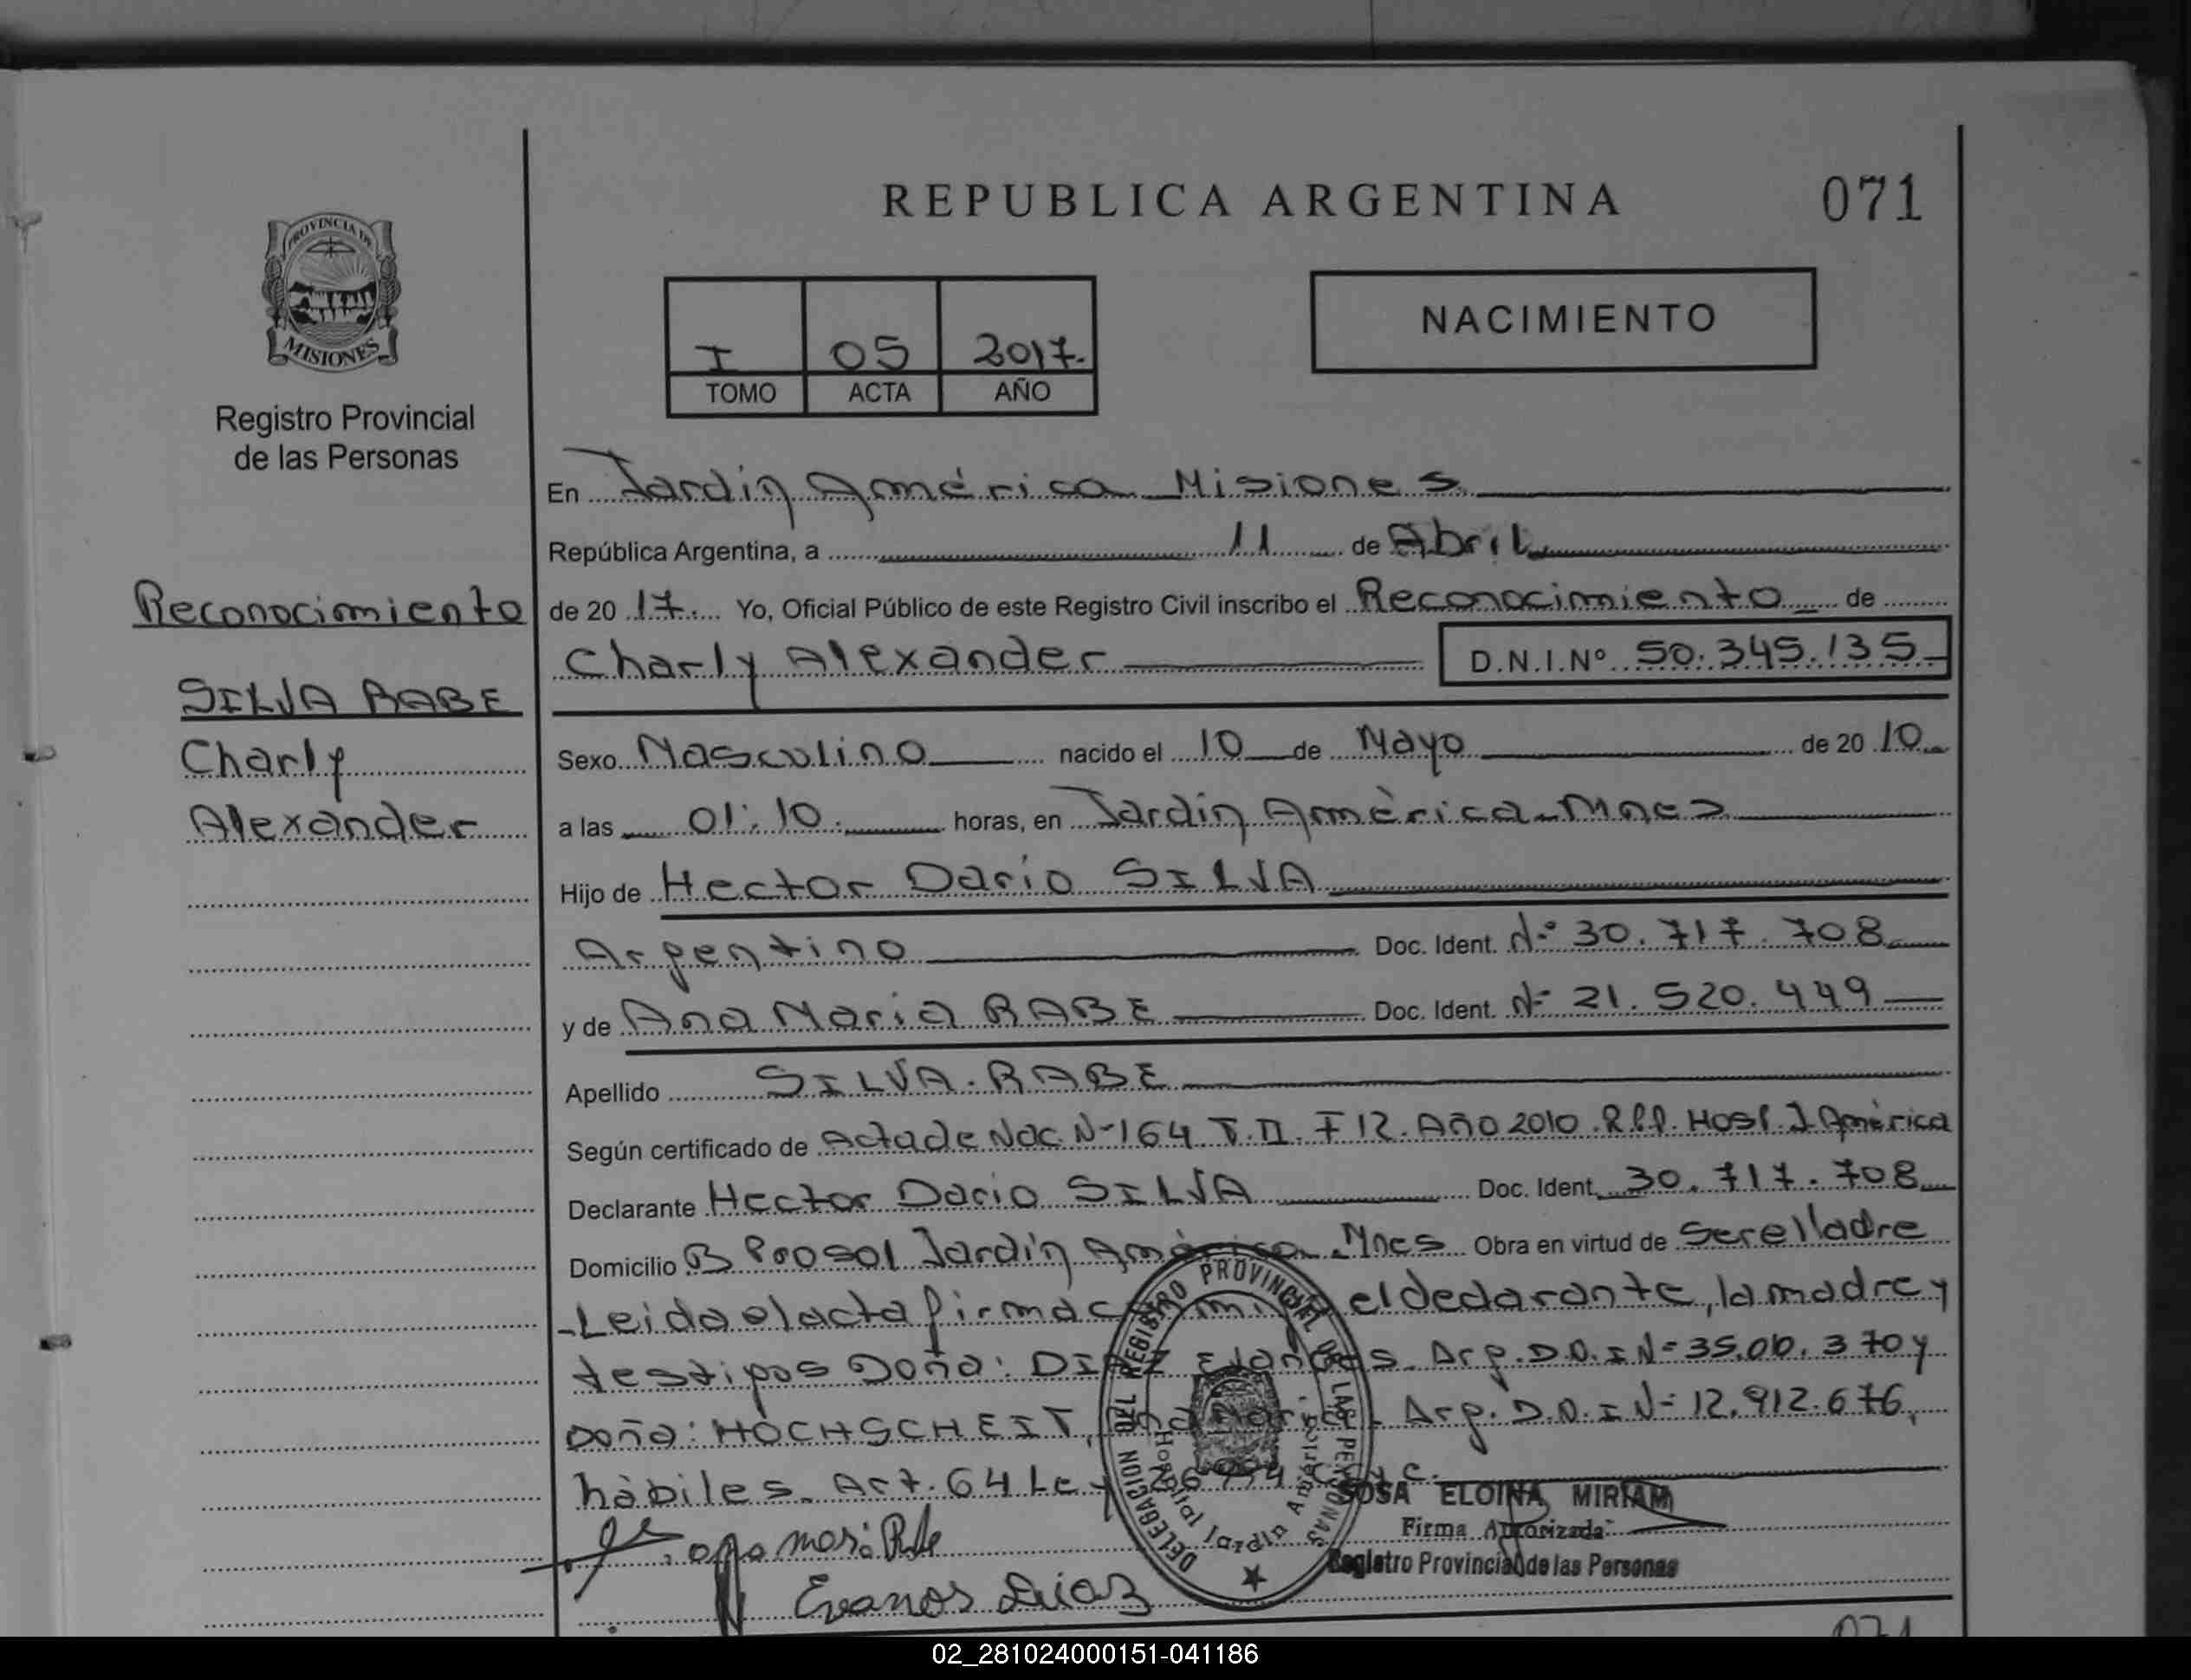 REPUBLICA ARGENTINA
071
PROVINCIA DE
MISIONES
Registro Provincial
de las Personas
I 05 2017.
TOMO ACTA AÑO
NACIMIENTO
Reconocimiento
SILVA RABE
Charly
Alexander
En Jardin América Misiones
República Argentina, a 11 de Abril
de 20 17. Yo, Oficial Público de este Registro Civil inscribo el Reconocimiento de
Charly Alexander D.N.I.Nº 50.345.135
Sexo Masculino nacido el 10 de Mayo de 20 10
a las 01:10. horas, en Jardin América-Mnes
Hijo de Hector Dario SILVA
Argentino Doc. Ident. Nº 30.717.708
y de Ana Maria RABE Doc. Ident. Nº 21.520.449
Apellido SILVA.RABE
Según certificado de Acta de Nac. Nº 164 T.II. F 12. Año 2010. R.P.P. Hosp. J. América
Declarante Hector Dario SILVA Doc. Ident. 30.717.708
Domicilio Bº Jardin América. Mnes Obra en virtud de Ser el Padre
-Leida el acta firman el declarante, la madre y
testigos Doña: Arg. D.N.I Nº 3 70 y
Doña: HOCHSCHEIT, Arg. D.N.I Nº 12.912.676,
hábiles. Art. 64 Ley C.
DELEGACION DEL REGISTRO PROVINCIAL DE LAS PERSONAS
Hospital Jardin America
SOSA ELOINA MIRIAM
Firma Autorizada
Registro Provincial de las Personas
Diaz
071
02_281024000151-041186